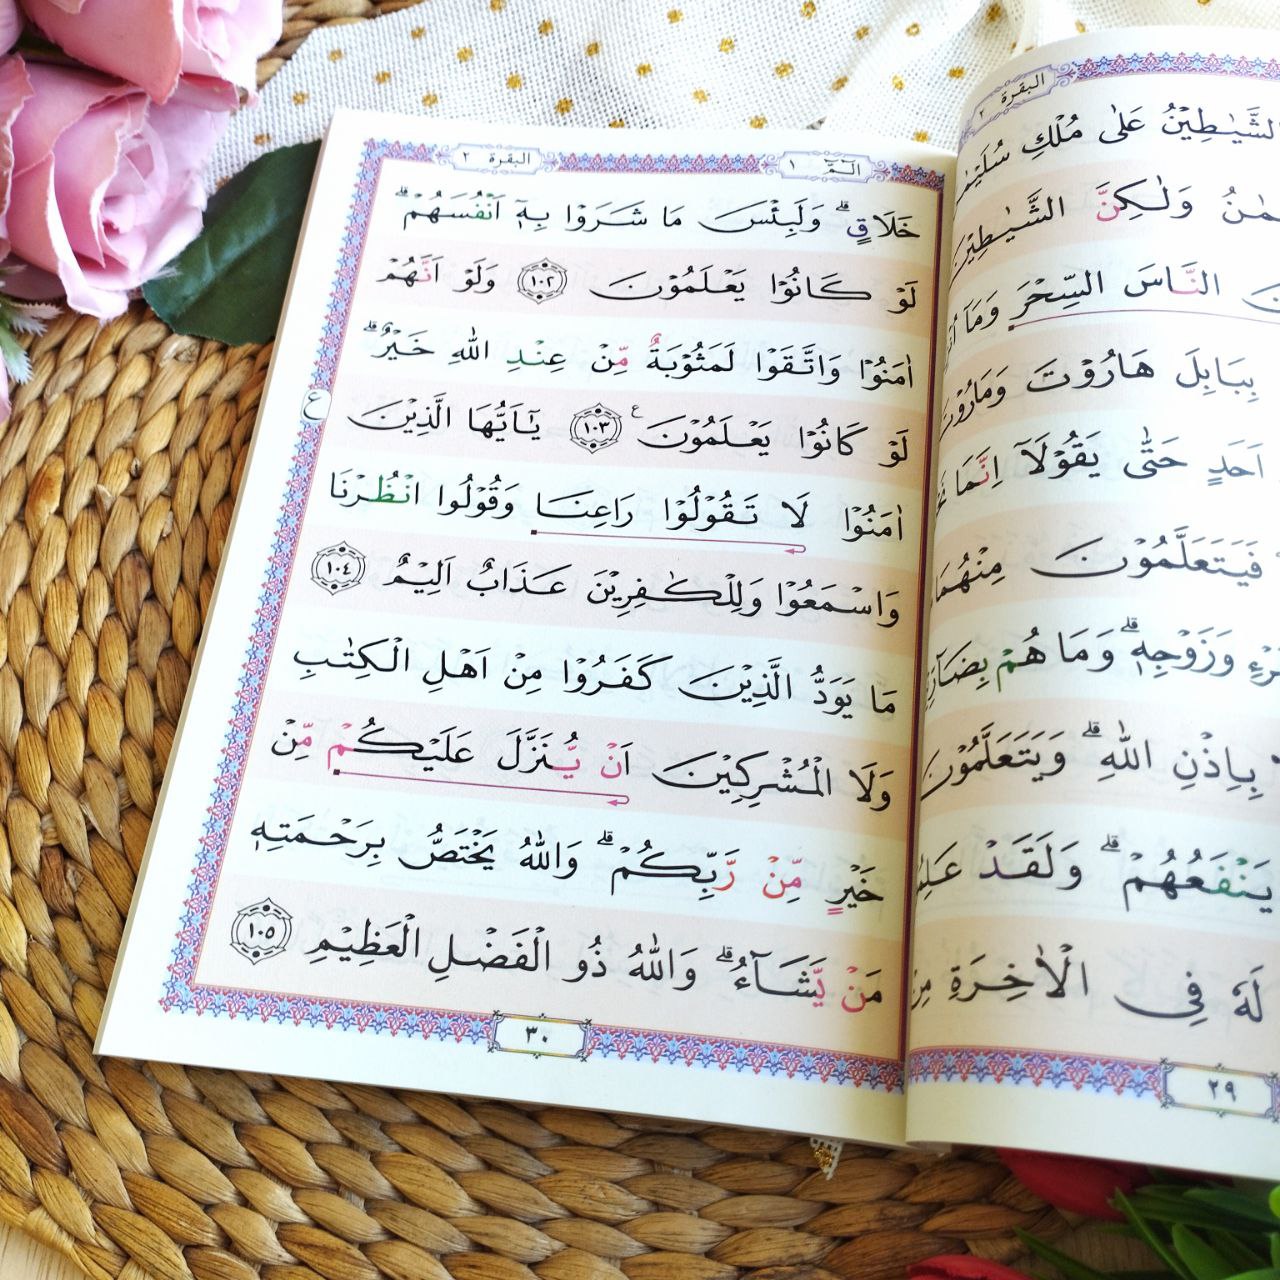 البقرة ٢
الشَّيٰطِيْنُ عَلٰى مُلْكِ سُلَيْمٰنَ
وَلٰـكِنَّ الشَّيٰـطِيْنَ
النَّاسَ السِّحْرَ وَمَآ
بِبَابِلَ هَارُوْتَ وَمَارُوْتَ
اَحَدٍ حَتّٰى يَقُوْلَآ اِنَّمَا
فَيَتَعَلَّمُوْنَ مِنْهُمَا
وَزَوْجِهٖ ۗ وَمَا هُمْ بِضَآرِّيْنَ
بِاِذْنِ اللّٰهِ ۗ وَيَتَعَلَّمُوْنَ
يَنْفَعُهُمْ ۗ وَلَقَدْ
لَهٗ فِى الْاٰخِرَةِ مِنْ
٢٩
الٓمّٓ ١
البقرة ٢
خَلَاقٍ ۗ وَلَبِئْسَ مَا شَرَوْا بِهٖٓ اَنْفُسَهُمْ ۗ
لَوْ كَانُوْا يَعْلَمُوْنَ ١٠٢ وَلَوْ اَنَّهُمْ
اٰمَنُوْا وَاتَّقَوْا لَمَثُوْبَةٌ مِّنْ عِنْدِ اللّٰهِ خَيْرٌ ۗ
لَوْ كَانُوْا يَعْلَمُوْنَ ع ١٠٣ يٰٓاَيُّهَا الَّذِيْنَ
ع
اٰمَنُوْا لَا تَقُوْلُوْا رَاعِنَا وَقُوْلُوا انْظُرْنَا
وَاسْمَعُوْا وَلِلْكٰفِرِيْنَ عَذَابٌ اَلِيْمٌ ١٠٤
مَا يَوَدُّ الَّذِيْنَ كَفَرُوْا مِنْ اَهْلِ الْكِتٰبِ
وَلَا الْمُشْرِكِيْنَ اَنْ يُّنَزَّلَ عَلَيْكُمْ مِّنْ
خَيْرٍ مِّنْ رَّبِّكُمْ ۗ وَاللّٰهُ يَخْتَصُّ بِرَحْمَتِهٖ
مَنْ يَّشَآءُ ۗ وَاللّٰهُ ذُو الْفَضْلِ الْعَظِيْمِ ١٠٥
٣٠